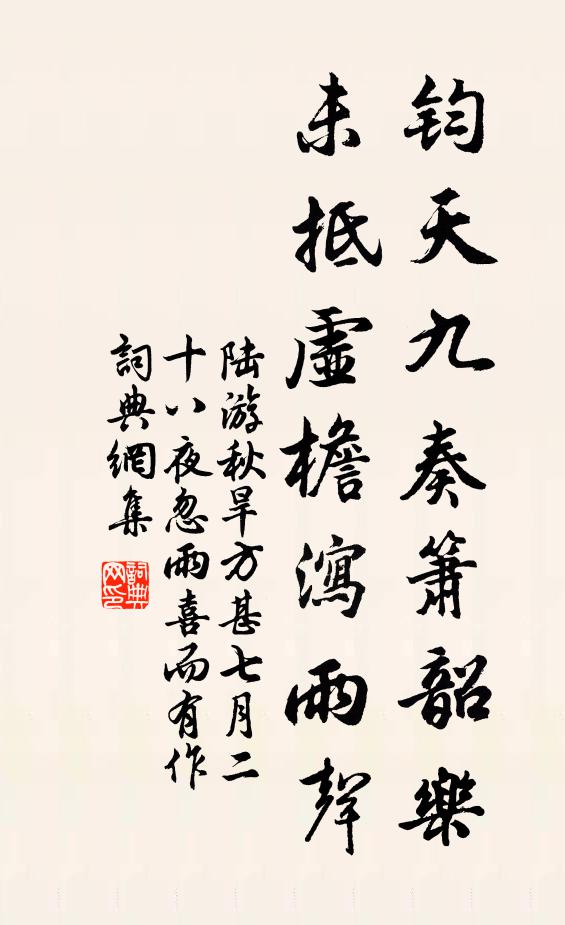 鈞天九奏箫韶樂
未抵虛檐瀉雨聲
陆游秋旱方甚七月二
十八夜忽雨喜而有作
詞典網集
詞典网印